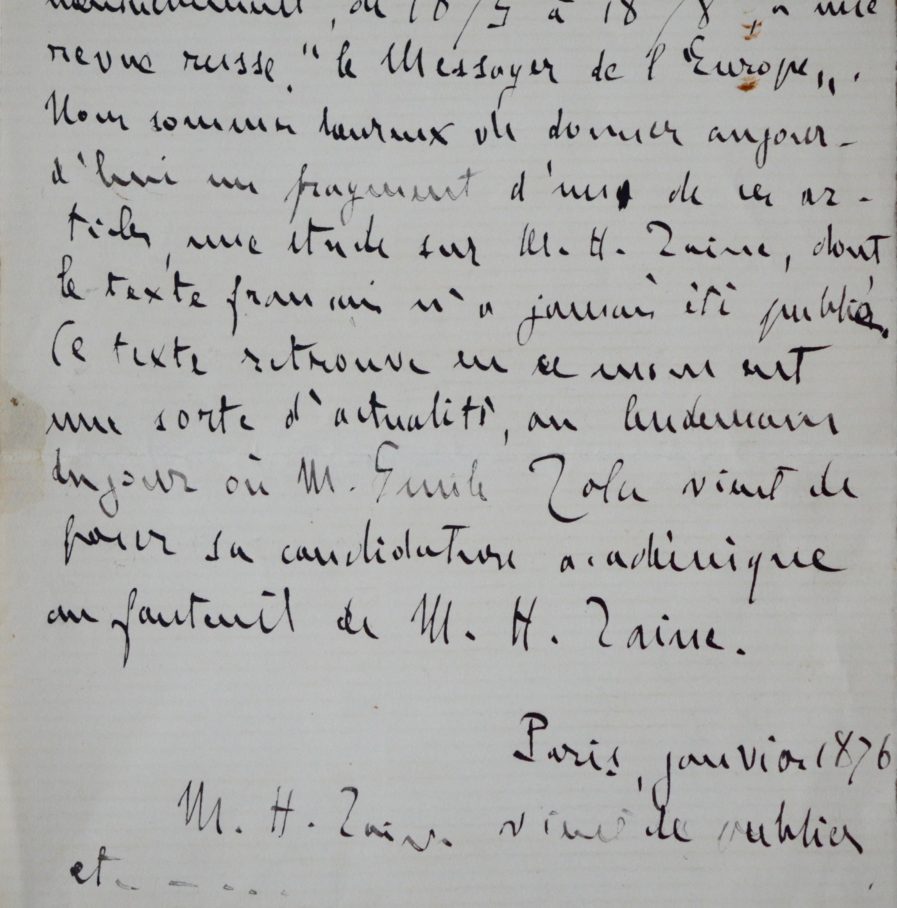 mensuellement, de 1875 à 18 8, à une
revue russe, "le Messager de l'Europe„.
Nous sommes heureux de donner aujour-
d'hui un fragment d'un de ces ar-
ticles, une étude sur M. H. Taine, dont
le texte français n'a jamais été publié.
Ce texte retrouve en ce moment
une sorte d'actualité, au lendemain
du jour où M. Emile Zola vient de
poser sa candidature académique
au fauteuil de M. H. Taine.
Paris, janvier 1876
M. H. Taine vient de publier
et- - - ....